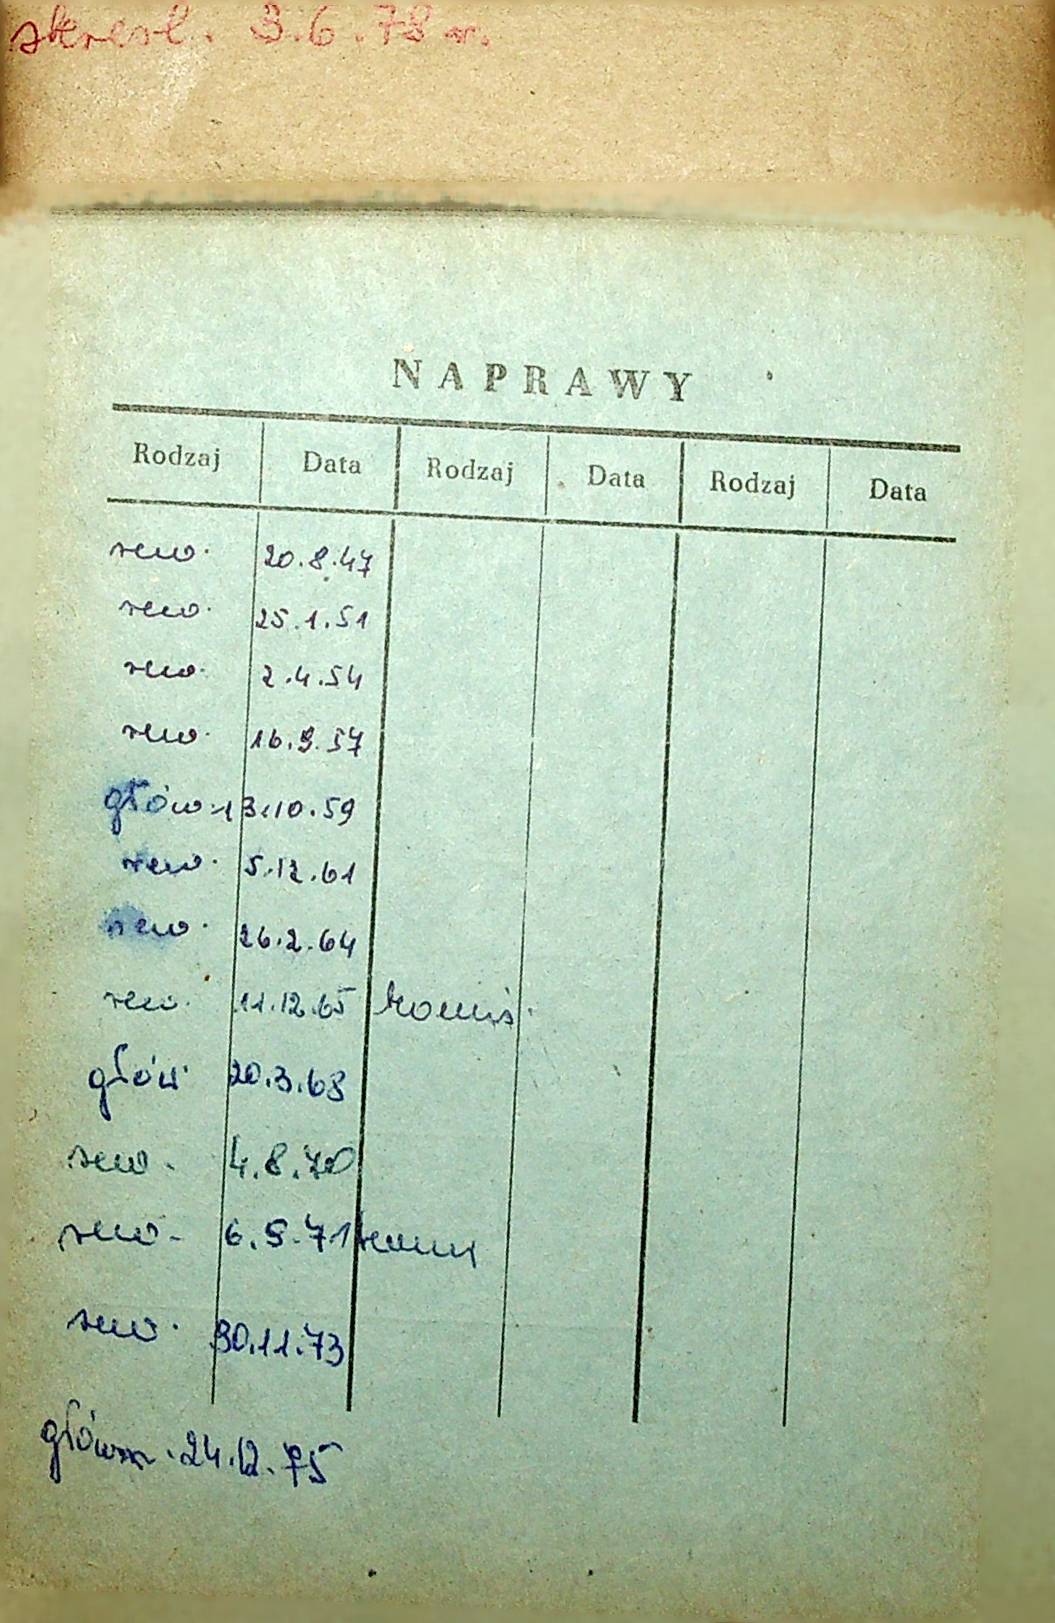 skreśl. 3.6.78 r.
NAPRAWY
Rodzaj Data Rodzaj Data Rodzaj Data
rew. 20.8.47
rew. 25.1.51
rew. 2.4.54
rew. 16.9.57
głów. 13.10.59
rew. 5.12.61
rew. 26.2.64
rew. 11.12.65
głów. 20.3.68
rew. 4.8.70
rew. 6.9.71
rew. 30.11.73
główn. 24.12.75